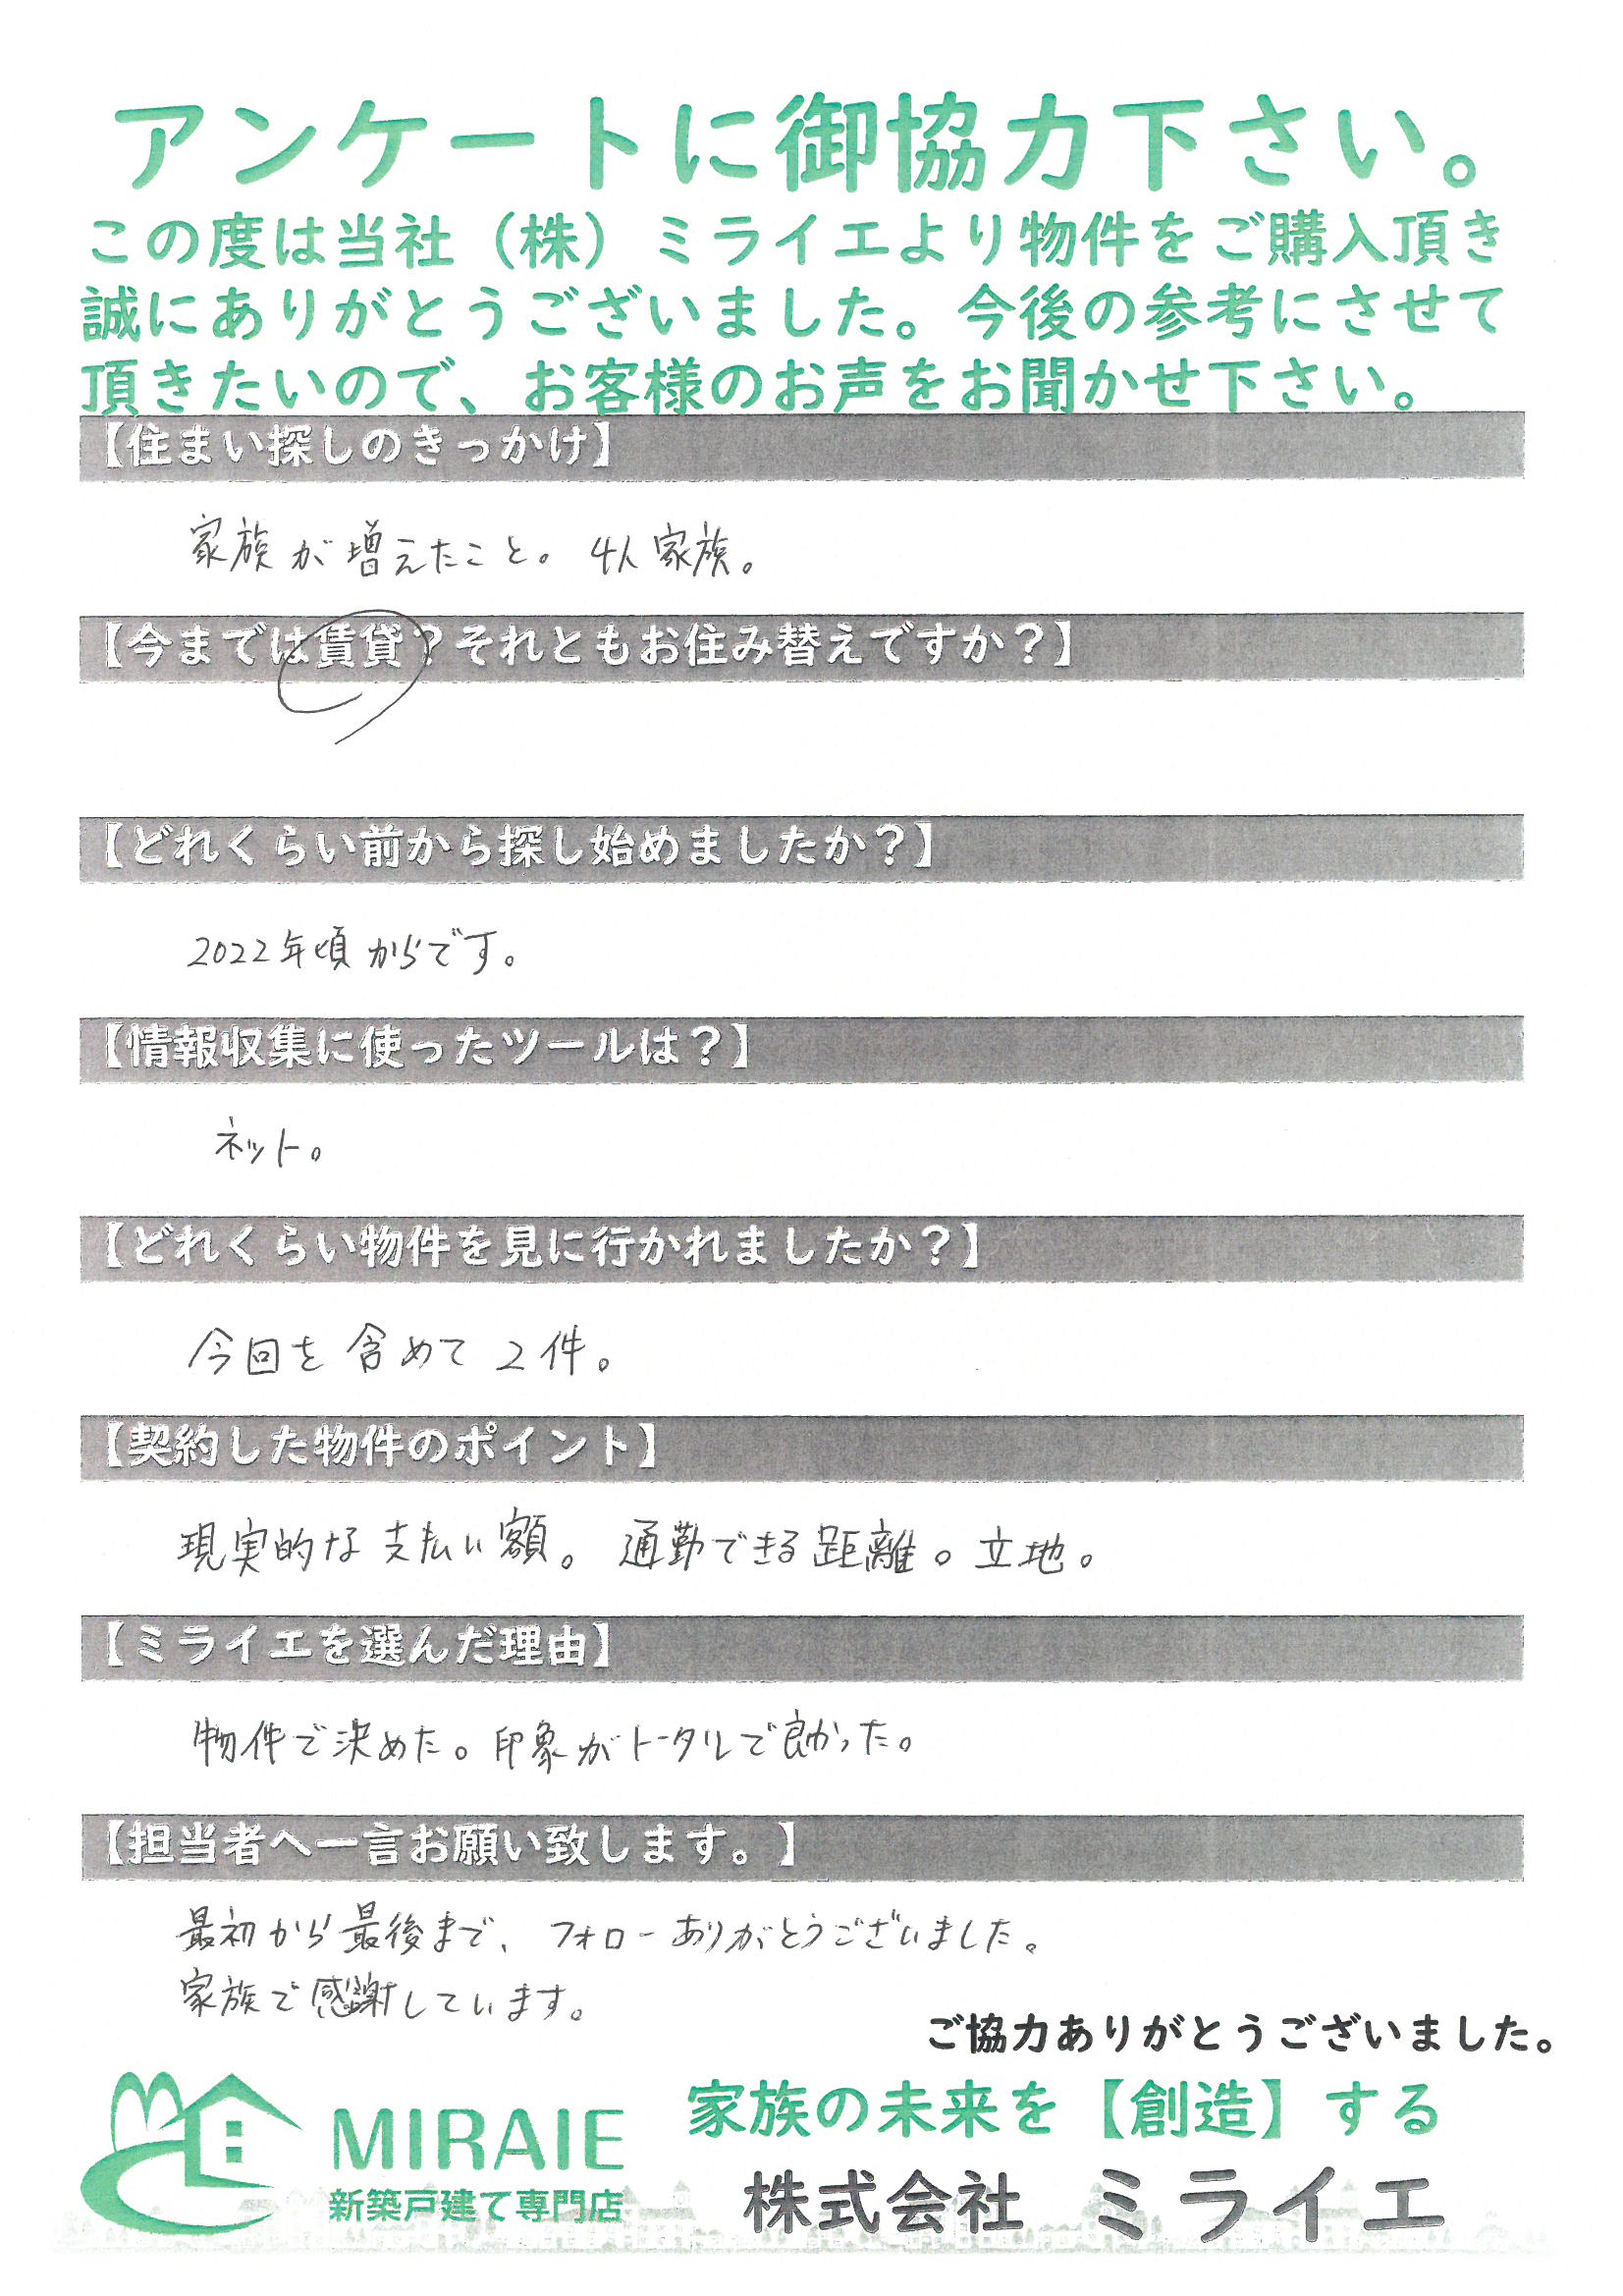 アンケートに御協力下さい。
この度は当社（株）ミライエより物件をご購入頂き
誠にありがとうございました。今後の参考にさせて
頂きたいので、お客様のお声をお聞かせ下さい。
【住まい探しのきっかけ】
家族が増えたこと。4人家族。
【今までは賃貸？それともお住み替えですか？】
【どれくらい前から探し始めましたか？】
2022年頃からです。
【情報収集に使ったツールは？】
ネット。
【どれくらい物件を見に行かれましたか？】
今回を含めて2件。
【契約した物件のポイント】
現実的な支払い額。通勤できる距離。立地。
【ミライエを選んだ理由】
物件で決めた。印象がトータルで良かった。
【担当者へ一言お願い致します。】
最初から最後まで、フォローありがとうございました。
家族で感謝しています。
ご協力ありがとうございました。
MIRAIE
新築戸建て専門店
家族の未来を【創造】する
株式会社 ミライエ